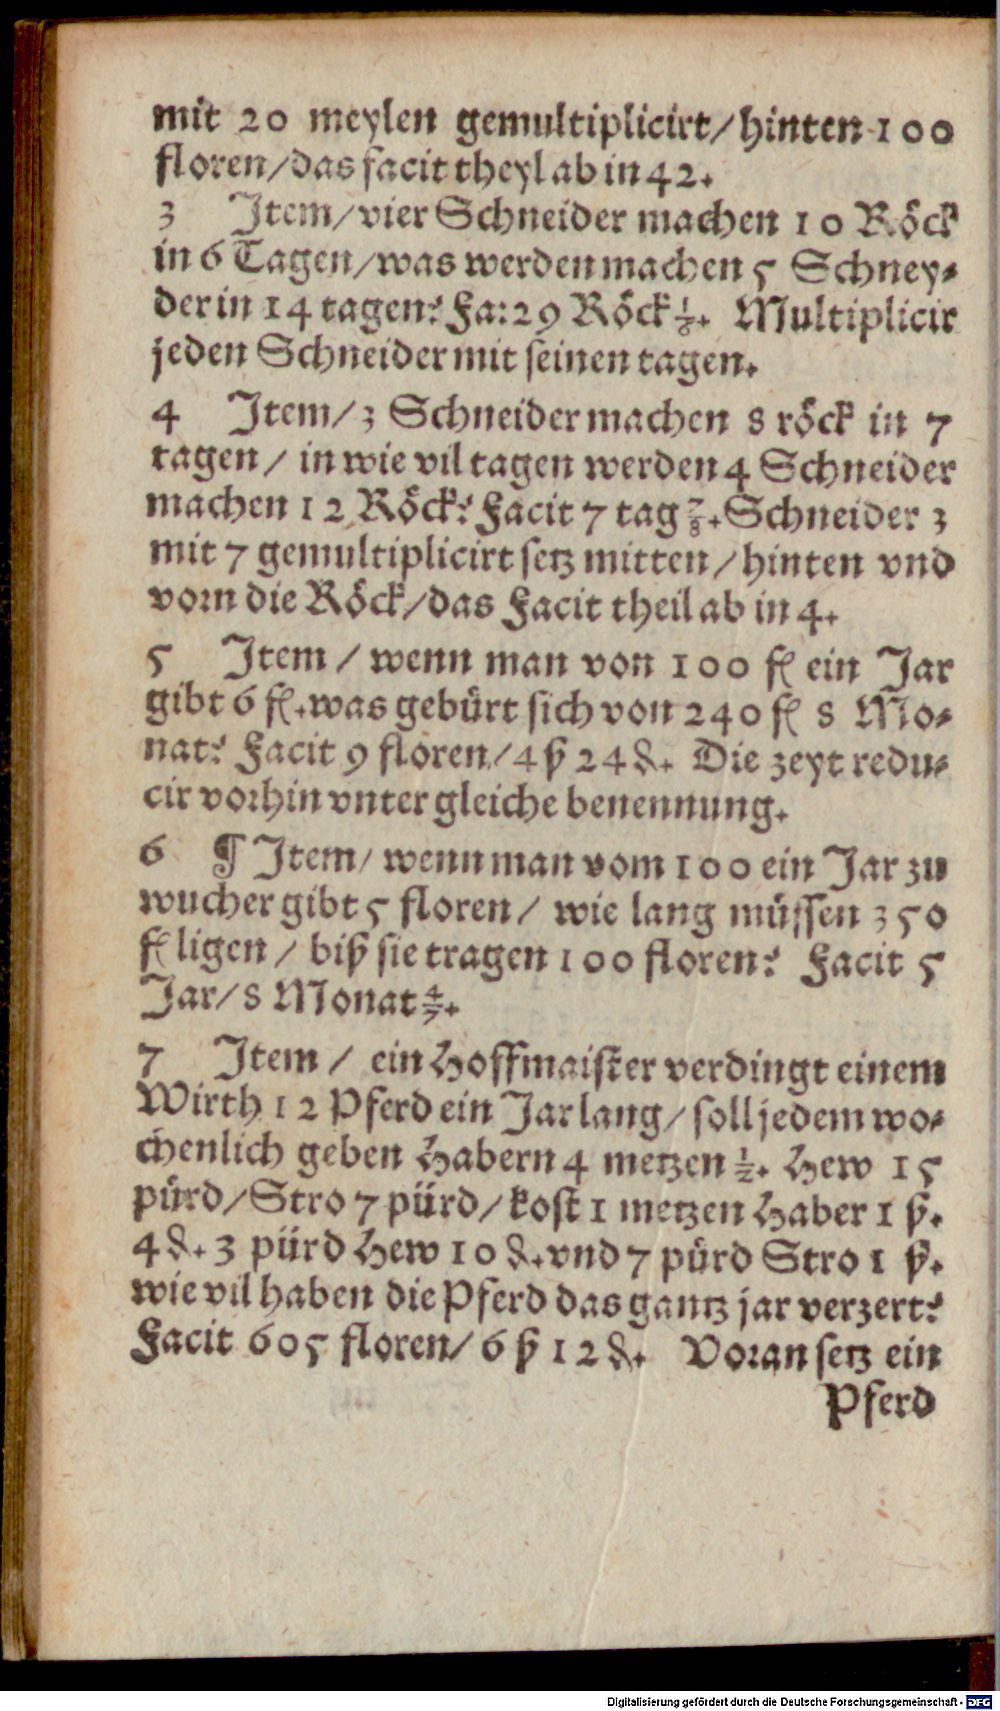 mit 20 meylen gemultiplicirt/hinten 100
floren/das facit theyl ab in 42.
3 Item/vier Schneider machen 10 Röck
in 6 Tagen/was werden machen 5 Schney⸗
der in 14 tagen? Fa: 29 Röck 1/6. Multiplicir
jeden Schneider mit seinen tagen.
4 Item/3 Schneider machen 8 röck in 7
tagen/ in wie vil tagen werden 4 Schneider
machen 12 Röck? Facit 7 tag 7/8. Schneider 3
mit 7 gemultiplicirt setz mitten/hinten vnd
vorn die Röck/das Facit theil ab in 4.
5 Item/ wenn man von 100 fl ein Jar
gibt 6 fl. was gebürt sich von 240 fl 8 Mo⸗
nat? Facit 9 floren/4 ß 24 ₰. Die zeyt redu⸗
cir vorhin vnter gleiche benennung.
6 ¶ Item/ wenn man vom 100 ein Jar zu
wucher gibt 5 floren/ wie lang müssen 350
fl ligen/ biß sie tragen 100 floren? Facit 5
Jar/8 Monat 4/7.
7 Item/ ein Hoffmaister verdingt einem
Wirth 12 Pferd ein Jar lang/ soll jedem wo⸗
chenlich geben Habern 4 metzen 1/2. Hew 15
pürd/Stro 7 pürd/kost 1 metzen Haber 1 ß.
4 ₰. 3 pürd Hew 10 ₰. vnd 7 pürd Stro 1 ß.
wie vil haben die Pferd das gantz jar verzert?
Facit 605 floren/ 6 ß 12 ₰. Voran setz ein
Pferd
Digitalisierung gefördert durch die Deutsche Forschungsgemeinschaft - DFG